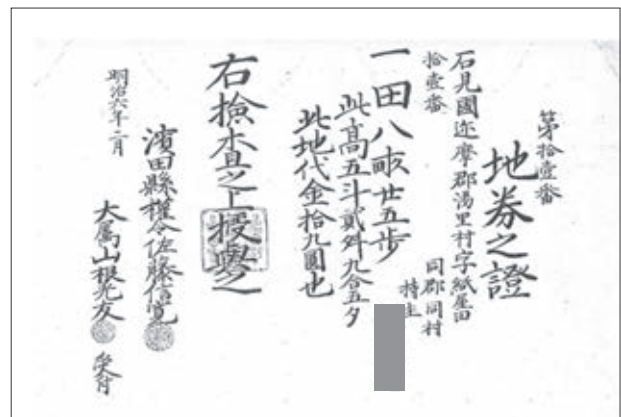 第拾壹番
地券之證
石見國迩摩郡湯里村字紙屋田
拾壹番
同郡同村
持主
一田八畝廿五歩
此高五斗貳舛九合五夕
此地代金拾九圓也
右撿査之上授與之
明治六年二月
濱田縣權令佐藤信寛
大属山根光友